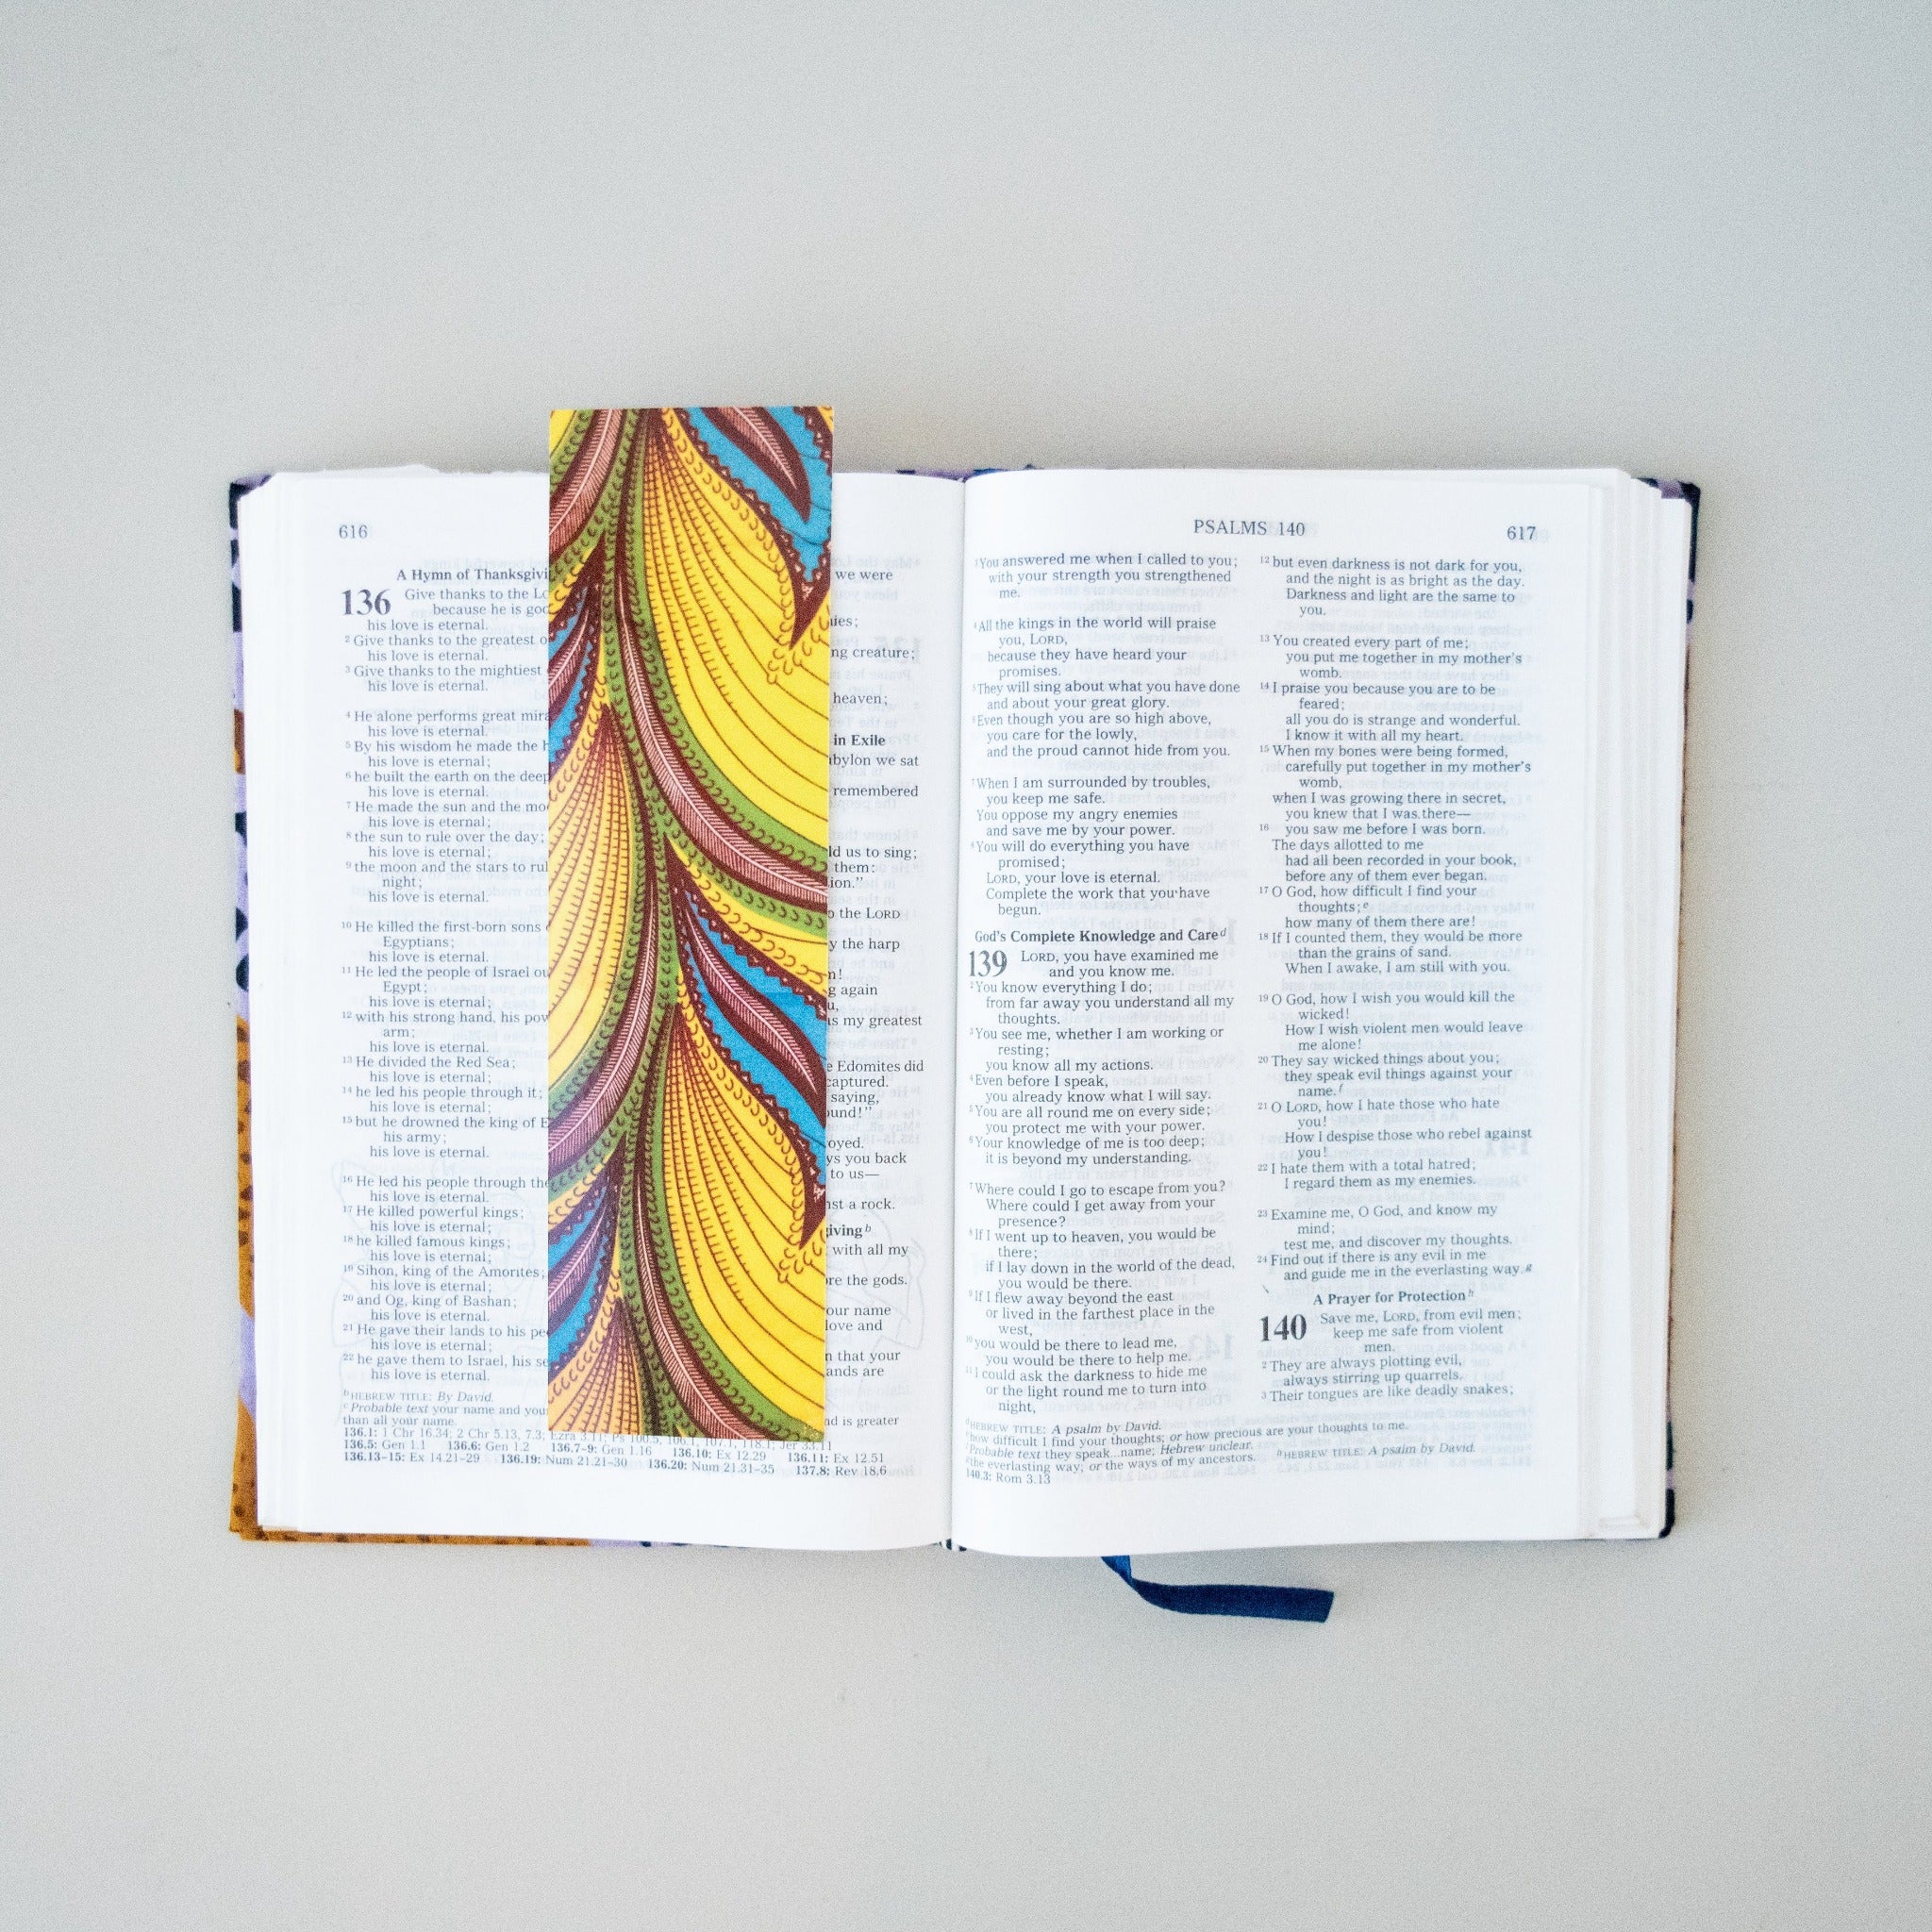 616
A Hymn of Thanksgivi
136 Give thanks to the
because he is
his love is eternal.
2 Give thanks to the greatest
his love is eternal.
3 Give thanks to the mightiest
his love is eternal.
4 He alone performs great
his love is eternal.
5 By his wisdom he made the
his love is eternal;
6 he built the earth on the deep
his love is eternal.
7 He made the sun and the
his love is eternal;
8 the sun to rule over the day;
his love is eternal;
9 the moon and the stars to
night;
his love is eternal.
10 He killed the first-born sons
Egyptians;
his love is eternal.
11 He led the people of Israel
Egypt;
his love is eternal;
12 with his strong hand, his
arm;
his love is eternal.
13 He divided the Red Sea;
his love is eternal;
14 he led his people through it;
his love is eternal;
15 but he drowned the king of
his army;
his love is eternal.
16 He led his people through the
his love is eternal.
17 He killed powerful kings;
his love is eternal;
18 he killed famous kings;
his love is eternal;
19 Sihon, king of the Amorites;
his love is eternal;
20 and Og, king of Bashan;
his love is eternal.
21 He gave their lands to his
his love is eternal;
22 he gave them to Israel, his
his love is eternal.
we were
creature;
heaven;
in Exile
we sat
remembered
us to sing;
them:
the LORD
the harp
again
my greatest
Edomites did
captured.
saying,
you back
to us—
a rock.
with all my
the gods.
name
love and
that your
are
is greater
b HEBREW TITLE: By David.
c Probable text your name and
than all your name.
136.1: 1 Chr 16.34; 2 Chr 5.13, 7.3; Ezra 3.11; Ps 100.5, 106.1, 107.1, 118.1; Jer 33.11
136.5: Gen 1.1 136.6: Gen 1.2 136.7–9: Gen 1.16 136.10: Ex 12.29 136.11: Ex 12.51
136.13–15: Ex 14.21–29 136.19: Num 21.21–30 136.20: Num 21.31–35 137.8: Rev 18.6
PSALMS 140 617
3 You answered me when I called to you;
with your strength you strengthened
me.
4 All the kings in the world will praise
you, LORD,
because they have heard your
promises.
5 They will sing about what you have done
and about your great glory.
6 Even though you are so high above,
you care for the lowly,
and the proud cannot hide from you.
7 When I am surrounded by troubles,
you keep me safe.
You oppose my angry enemies
and save me by your power.
8 You will do everything you have
promised;
LORD, your love is eternal.
Complete the work that you have
begun.
God's Complete Knowledge and Care d
139 LORD, you have examined me
and you know me.
2 You know everything I do;
from far away you understand all my
thoughts.
3 You see me, whether I am working or
resting;
you know all my actions.
4 Even before I speak,
you already know what I will say.
5 You are all round me on every side;
you protect me with your power.
6 Your knowledge of me is too deep;
it is beyond my understanding.
7 Where could I go to escape from you?
Where could I get away from your
presence?
8 If I went up to heaven, you would be
there;
if I lay down in the world of the dead,
you would be there.
9 If I flew away beyond the east
or lived in the farthest place in the
west,
10 you would be there to lead me,
you would be there to help me.
11 I could ask the darkness to hide me
or the light round me to turn into
night,
12 but even darkness is not dark for you,
and the night is as bright as the day.
Darkness and light are the same to
you.
13 You created every part of me;
you put me together in my mother's
womb.
14 I praise you because you are to be
feared;
all you do is strange and wonderful.
I know it with all my heart.
15 When my bones were being formed,
carefully put together in my mother's
womb,
when I was growing there in secret,
you knew that I was there—
16 you saw me before I was born.
The days allotted to me
had all been recorded in your book,
before any of them ever began.
17 O God, how difficult I find your
thoughts; e
how many of them there are!
18 If I counted them, they would be more
than the grains of sand.
When I awake, I am still with you.
19 O God, how I wish you would kill the
wicked!
How I wish violent men would leave
me alone!
20 They say wicked things about you;
they speak evil things against your
name. f
21 O LORD, how I hate those who hate
you!
How I despise those who rebel against
you!
22 I hate them with a total hatred;
I regard them as my enemies.
23 Examine me, O God, and know my
mind;
test me, and discover my thoughts.
24 Find out if there is any evil in me
and guide me in the everlasting way. g
A Prayer for Protection h
140 Save me, LORD, from evil men;
keep me safe from violent
men.
2 They are always plotting evil,
always stirring up quarrels.
3 Their tongues are like deadly snakes;
d HEBREW TITLE: A psalm by David.
e how difficult I find your thoughts; or how precious are your thoughts to me.
f Probable text they speak...name; Hebrew unclear.
g the everlasting way; or the ways of my ancestors. h HEBREW TITLE: A psalm by David.
140.3: Rom 3.13